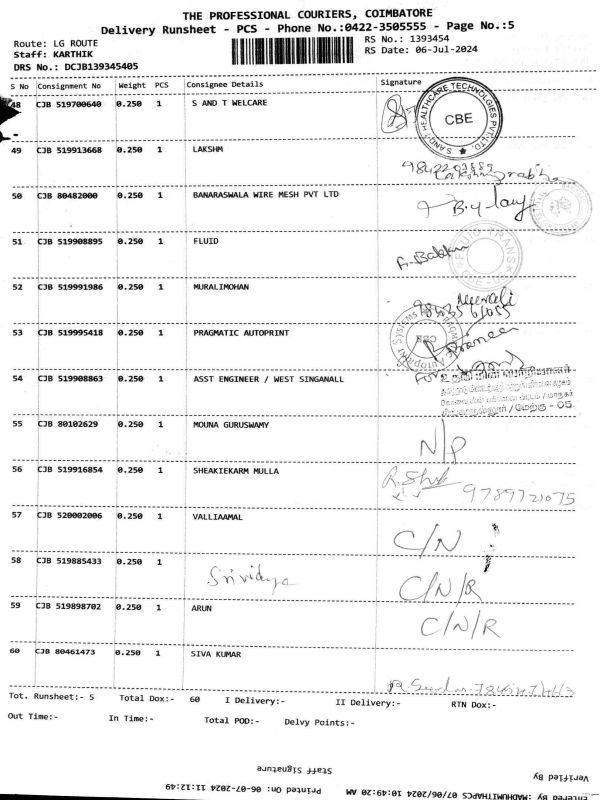 THE PROFESSIONAL COURIERS, COIMBATORE
Delivery Runsheet - PCS - Phone No.:0422-3505555 - Page No.:5
Route: LG ROUTE RS No.: 1393454
Staff: KARTHIK RS Date: 06-Jul-2024
DRS No.: DCJB139345405
S No Consignment No Weight PCS Consignee Details Signature
48 CJB 519700640 0.250 1 S AND T WELCARE
CBE
49 CJB 519913668 0.250 1 LAKSHM
50 CJB 80482000 0.250 1 BANARASWALA WIRE MESH PVT LTD
51 CJB 519908895 0.250 1 FLUID
FLUID TRANS
52 CJB 519991986 0.250 1 MURALIMOHAN
53 CJB 519995418 0.250 1 PRAGMATIC AUTOPRINT
54 CJB 519908863 0.250 1 ASST ENGINEER / WEST SINGANALL
55 CJB 80102629 0.250 1 MOUNA GURUSWAMY
N/P
56 CJB 519916854 0.250 1 SHEAKIEKARM MULLA
9789721075
57 CJB 520002006 0.250 1 VALLIAAMAL
C/N
58 CJB 519885433 0.250 1 Srividya C/N/R
59 CJB 519898702 0.250 1 ARUN C/N/R
60 CJB 80461473 0.250 1 SIVA KUMAR
Tot. Runsheet:- 5 Total Dox:- 60 I Delivery:- II Delivery:- RTN Dox:-
Out Time:- In Time:- Total POD:- Delvy Points:-
Staff Signature Verified By
Printed On: 06-07-2024 11:12:49 Entered By :MADHUMITHAPCS 07/06/2024 10:49:20 AM